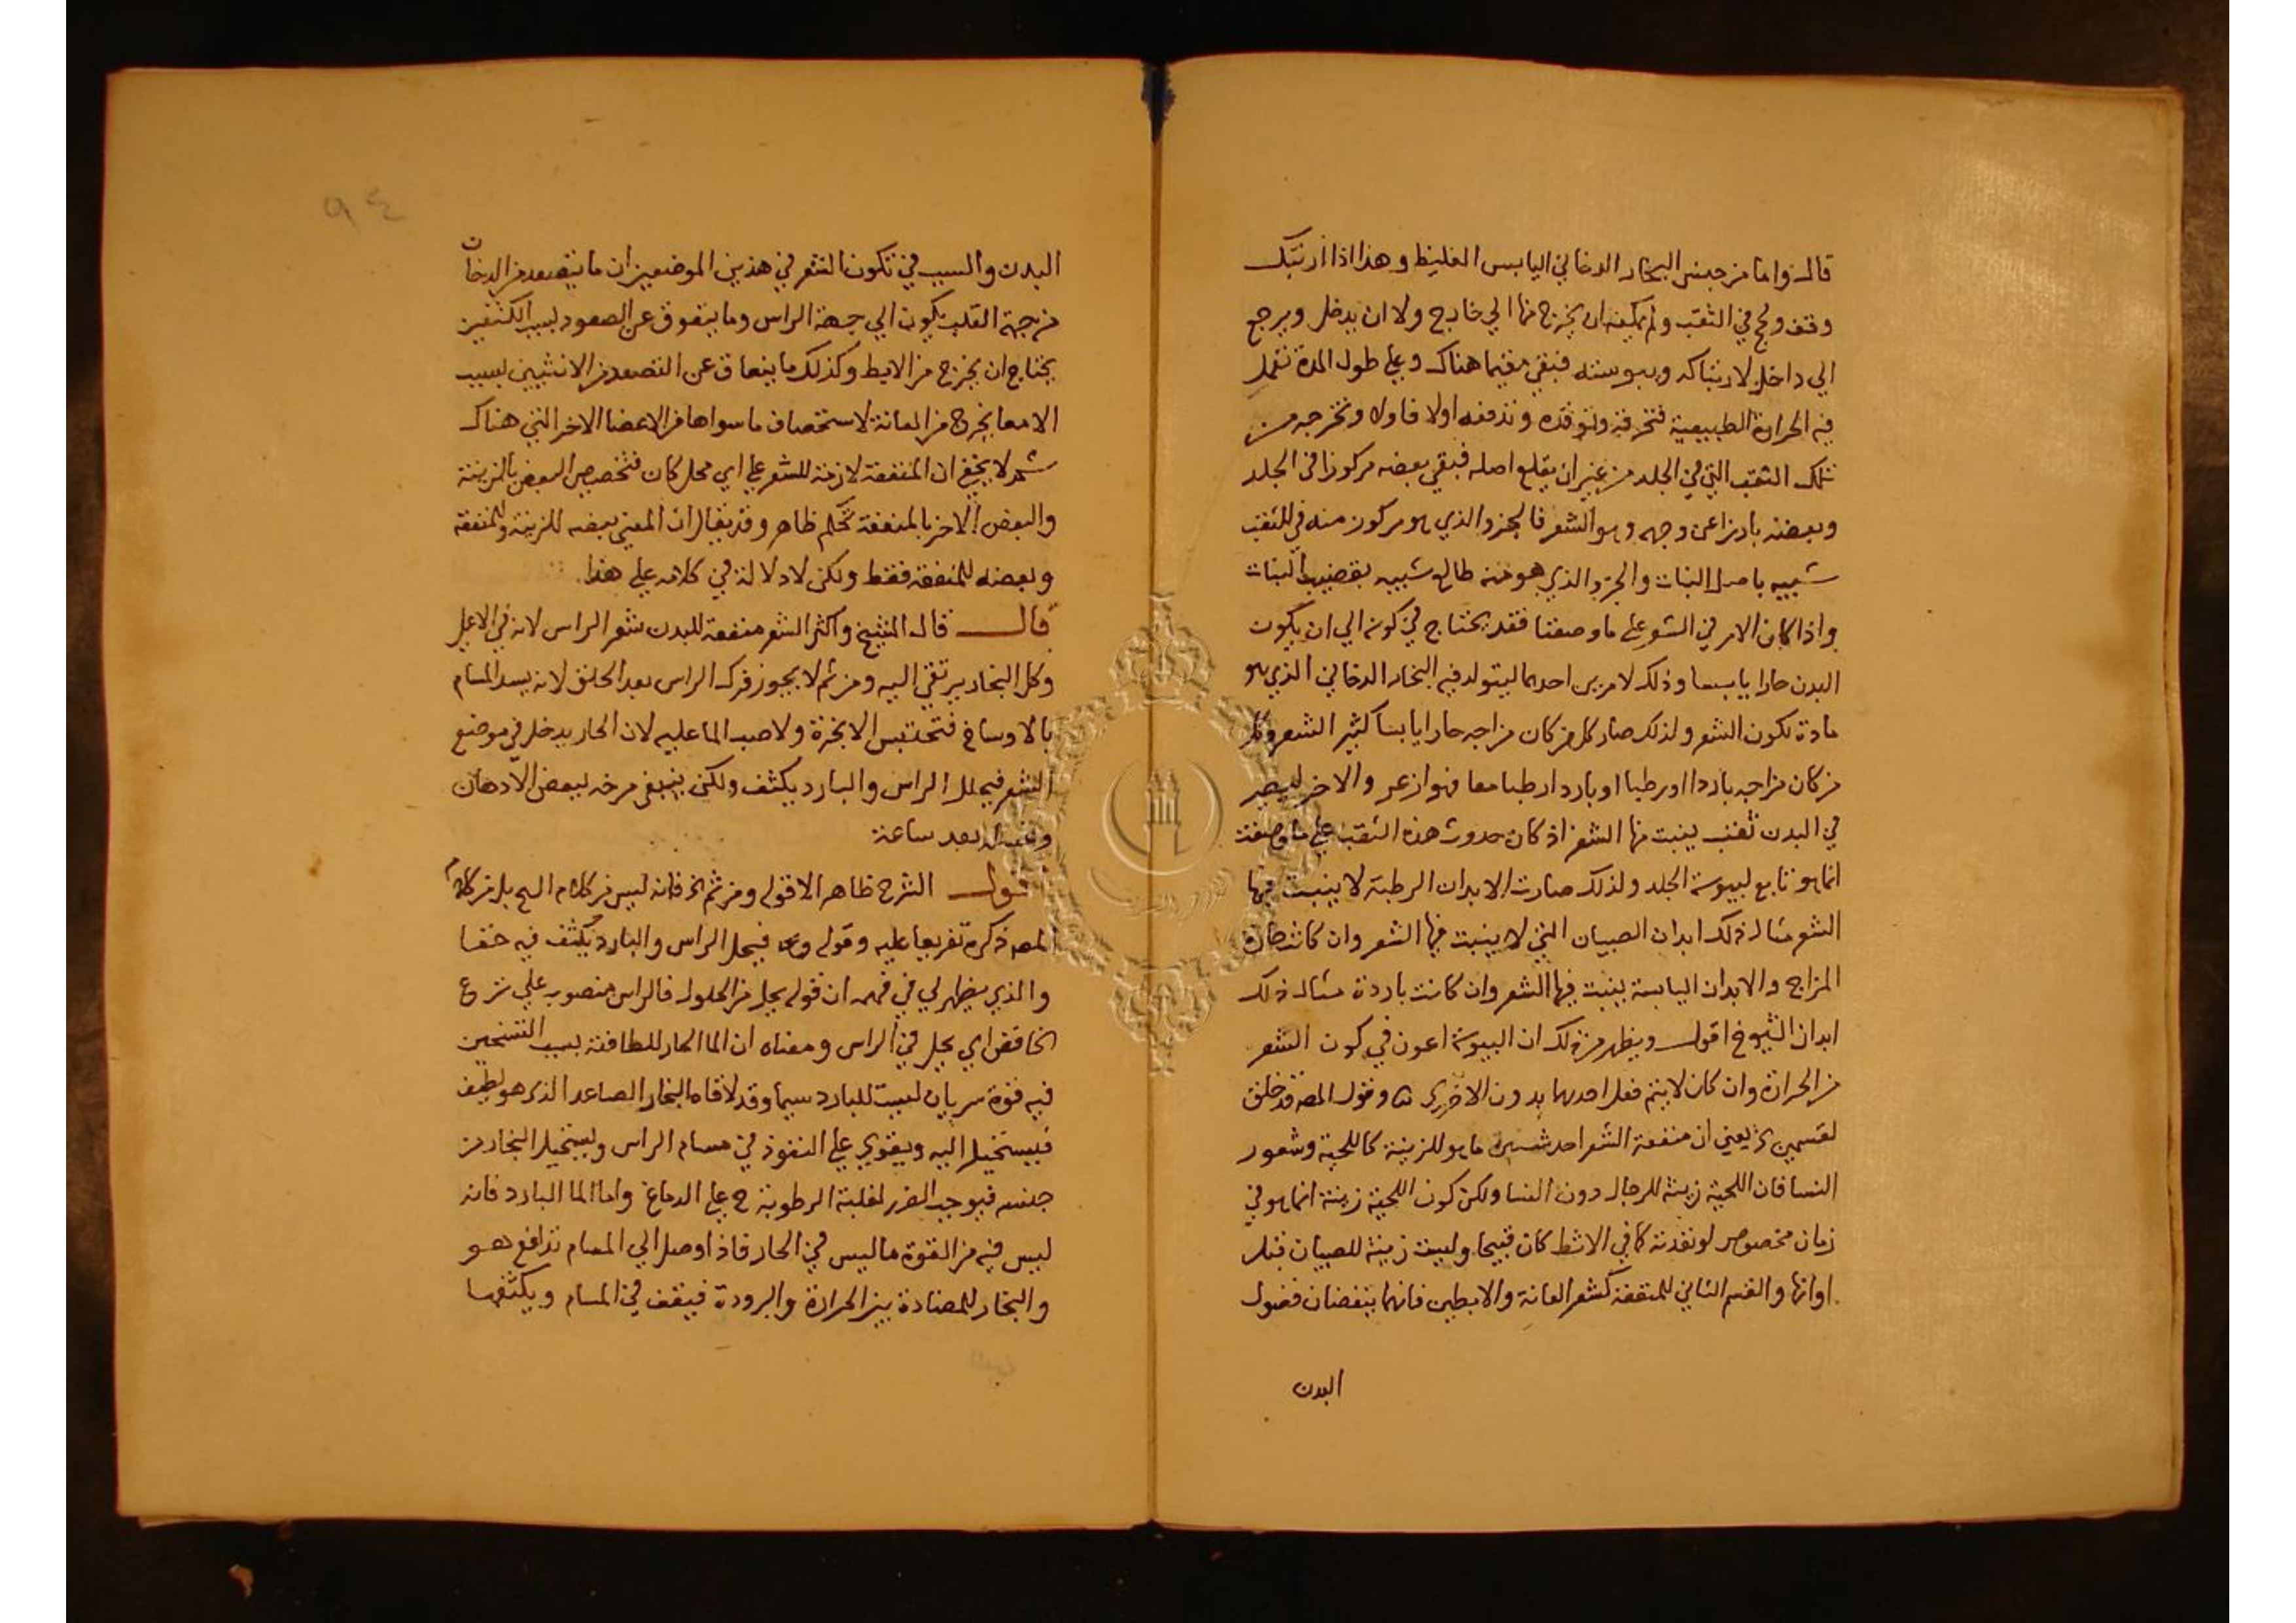 قال واما من جنس البخار الدخاني اليابس الغليظ وهذا اذا ارتبك
وقف ولحج في الثقب ولم يمكنه ان يخرج منها الي خارج ولا ان يدخل ويرجع
الي داخل لارتباكه ويبوسته فبقي مقيما هناك وعلي طول المدة تعمل
فيه الحرارة الطبيعية فتحرقه وتوقده وتدفعه اولا فاولا وتخرجه من
تلك الثقب التي في الجلد من غير ان يقلع اصله فبقي بعضه مركوزا في الجلد
وبعضه بارزا عن وجهه وهو الشعر فالجزو الذي هو مركوز منه في الثقب
شبيه باصل النبات والجزو الذي هو منه طالع شبيه بقضيب النبات
واذا كان الامر في الشعر علي ما وصفنا فقد يحتاج في كونه الي ان يكون
البدن حارا يابسا وذلك لامرين احدهما ليتولد فيه البخار الدخاني الذي هو
مادة تكون الشعر ولذلك صار كل من كان مزاجه حارا يابسا كثير الشعر وكل
من كان مزاجه باردا او رطبا او باردا رطبا معا فهو ازعر والاخر ليصير
في البدن ثقب ينبت منها الشعر اذ كان حدوث هذه الثقب علي ما وصفت
انما هو تابع ليبوسة الجلد ولذلك صارت الابدان الرطبة لا ينبت فيها
الشعر مثال ذلك ابدان الصبيان التي لا ينبت فيها الشعر وان كانت حارة
المزاج والابدان اليابسة ينبت فيها الشعر وان كانت باردة مثال ذلك
ابدان الشيوخ اقول ويظهر من ذلك ان اليبوسة اعون في كون الشعر
من الحرارة وان كان لا يتم فعل احديهما بدون الاخري وقول المصـ قد خلق
لقسمين يعني ان منفعة الشعر احد شيئين ما هو للزينة كاللحية وشعور
النسا فان اللحية زينة للرجال دون النسا ولكن كون اللحية زينة انما هو في
زمان مخصوص لو تعدته كما في الاشط كان قبيحا وليست زينة للصبيان قبل
اوانها والقسم الثاني للمنفعة كشعر العانة والابطين فانهما ينفضان فضول
البدن
٩٤
البدن والسبب في تكون الشعر في هذين الموضعين ان ما يتصعد من الدخان
من جهة القلب يكون الي جهة الراس وما يتعوق عن الصعود بسبب الكتفين
يحتاج ان يخرج من الابط وكذلك ما ينعاق عن التصعد من الانثيين بسبب
الامعا يخرج من العانة لاستحصاف ما سواها من الاعضا الاخر التي هناك
ثم لا يخفي ان المنفعة لازمة للشعر علي اي محل كان فتخصيص البعض بالزينة
والبعض الاخر بالمنفعة تحكم ظاهر وقد يقال ان المعني بعضه للزينة والمنفعة
وبعضه للمنفعة فقط ولكن لا دلالة في كلامه علي هذا
قال قال الشيخ واكثر الشعر منفعة للبدن شعر الراس لانه في الاعلي
وكل البخار يرتقي اليه ومن ثم لا يجوز فرك الراس بعد الحلق لانه يسد المسام
بالاوساخ فتحتبس الابخرة ولا صب الما عليه لان الحار يدخل في موضع
الشعر فيملل الراس والبارد يكثف ولكن ينبغي مرخه ببعض الادهان
وغسله بعد ساعة
اقول الشرح ظاهر الا قوله ومن ثم الخ فانه ليس من كلام الشيخ بل من كلام
المصـ ذكره تفريعا عليه وقوله فيحل الراس والبارد يكثف فيه خفا
والذي يظهر لي في فهمه ان قوله يحل من الحلول فالراس منصوب علي نزع
الخافض اي يحل في الراس ومعناه ان الما الحار للطافته بسبب التسخين
فيه قوة سريان ليست للبارد سيما وقد لاقاه البخار الصاعد الذي هو لطيف
فيستحيل اليه ويقوي علي النفوذ في مسام الراس ويستحيل البخار من
جنسه فيوجب الضرر لغلبة الرطوبة ح علي الدماغ واما الما البارد فانه
ليس فيه من القوة ما ليس في الحار فاذا وصل الي المسام تدافع هو
والبخار للمضادة بين الحرارة والبرودة فيقف في المسام ويكثفها